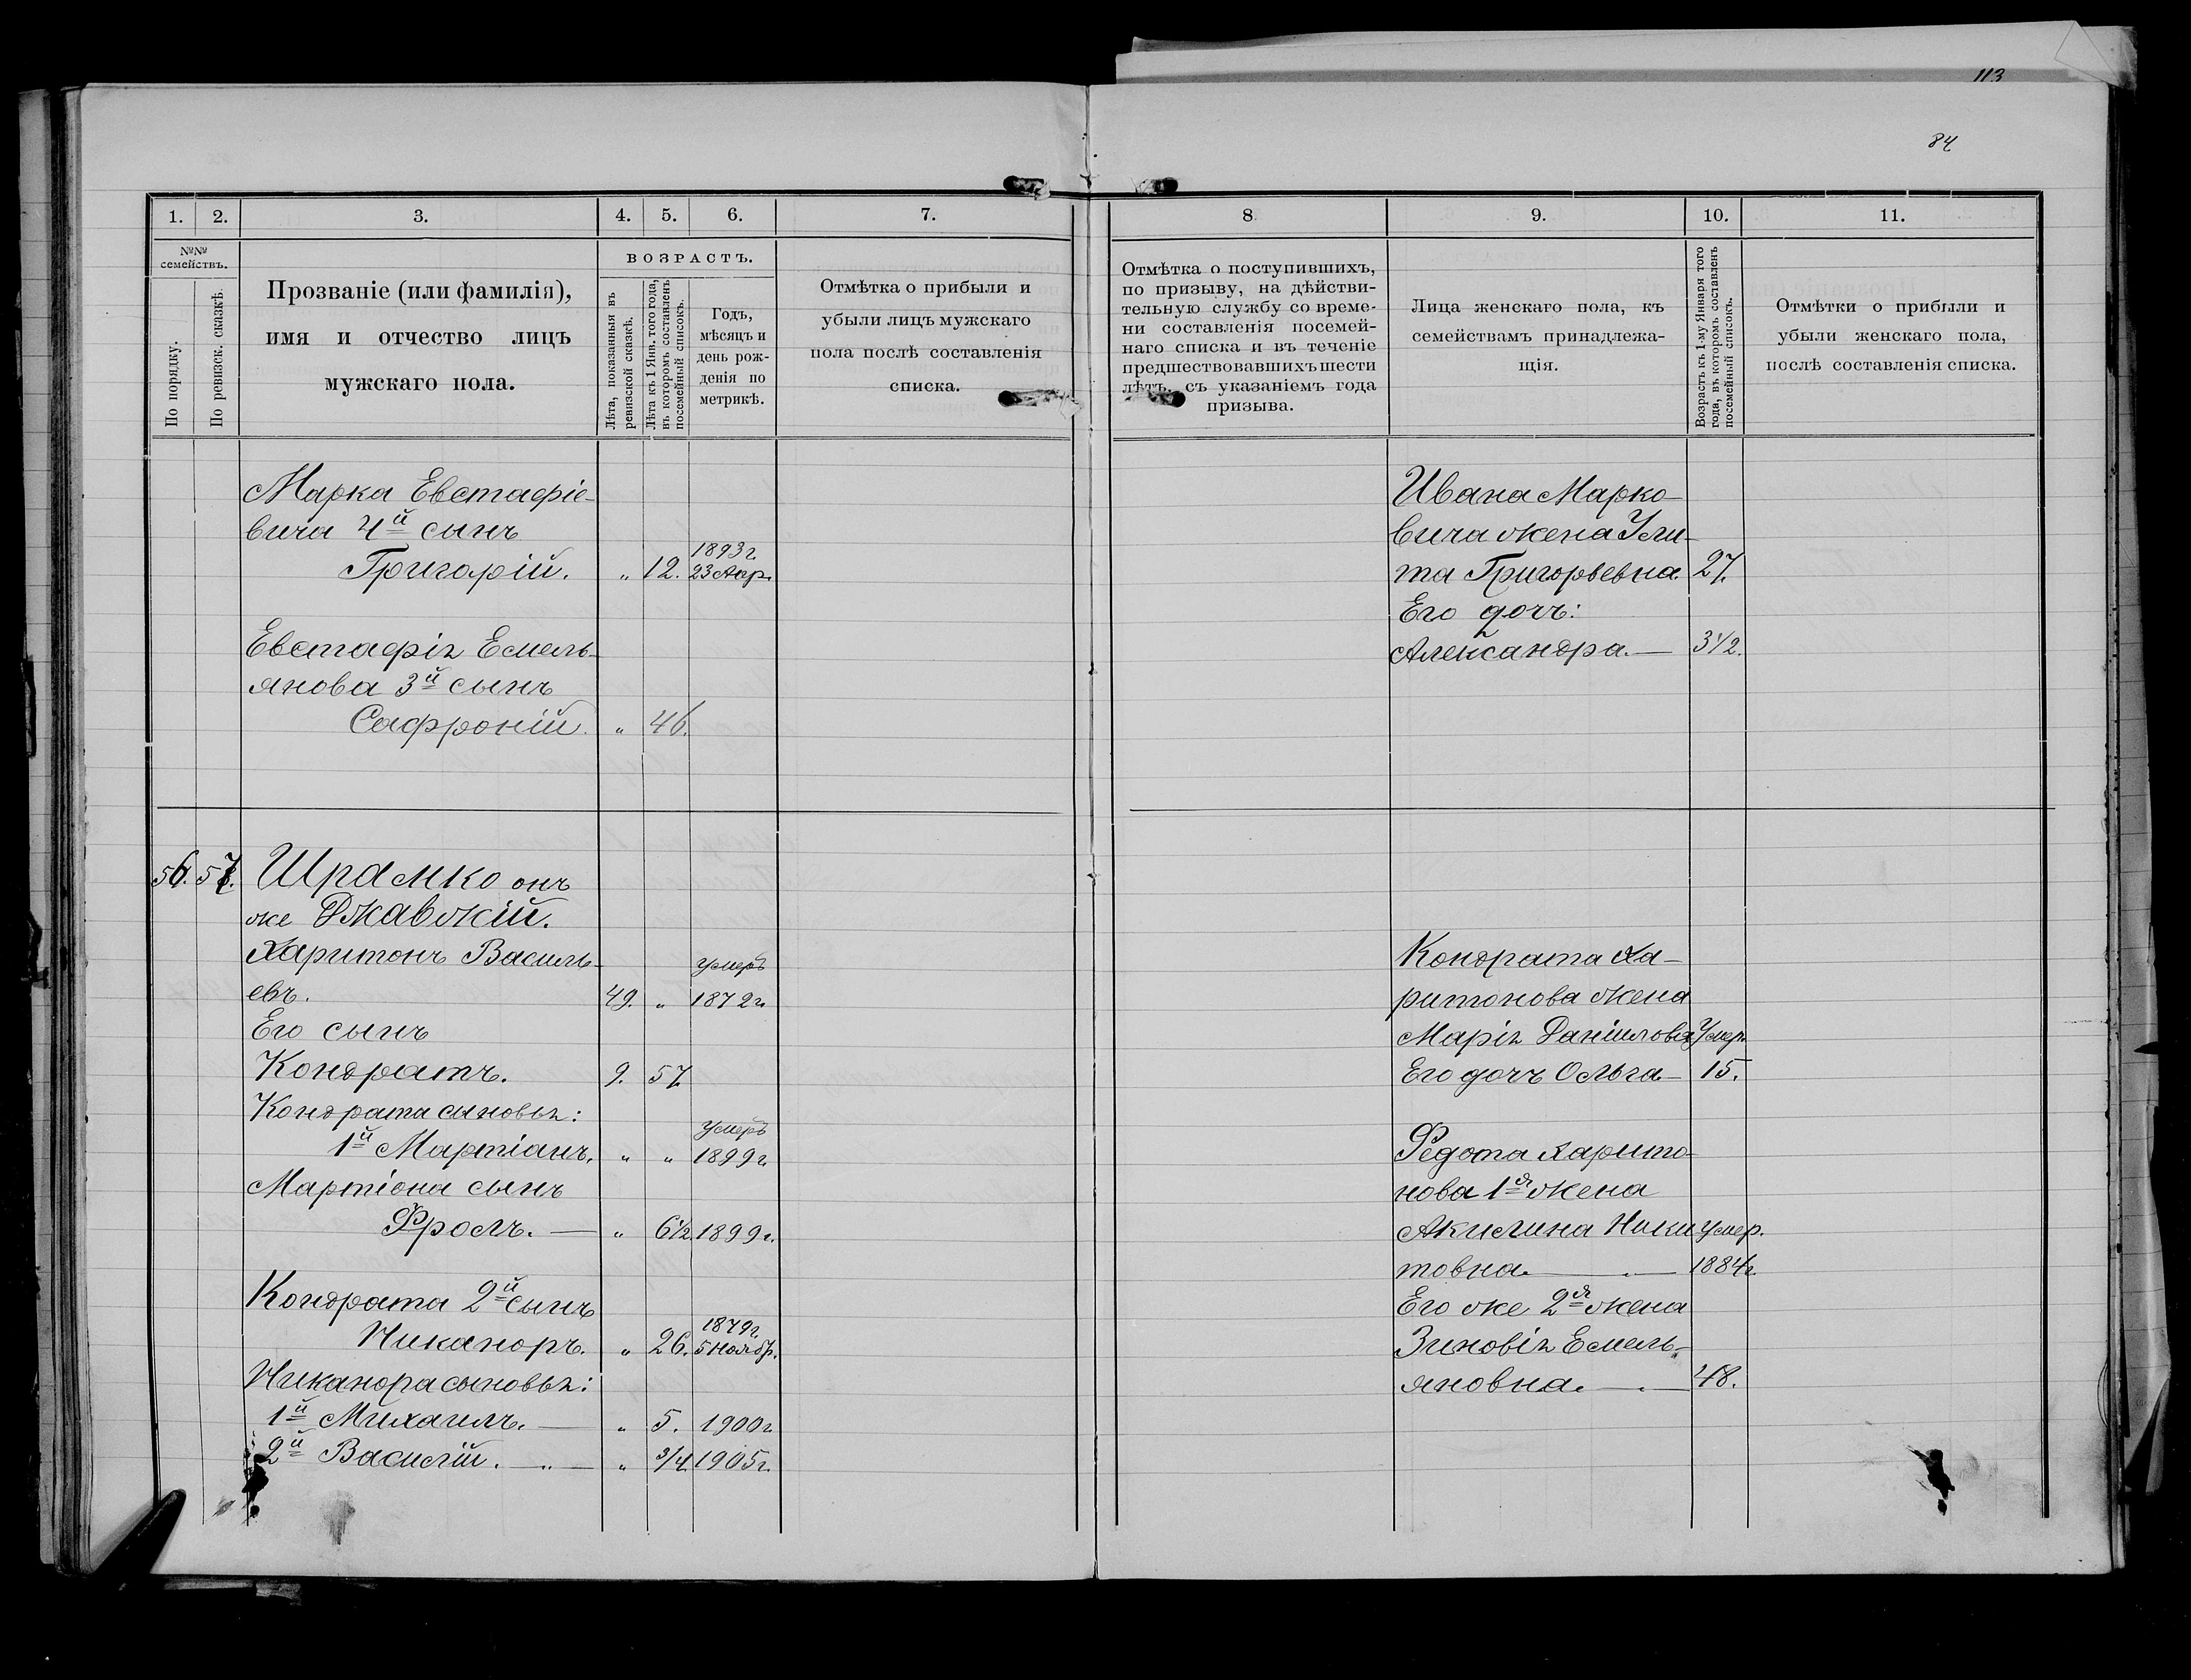 113
84
1. 2. 3. 4. 5. 6. 7.
№№ семействъ.
По порядку.
По ревизск. сказкѣ.
Прозваніе (или фамилія),
имя и отчество лицъ
мужскаго пола.
ВОЗРАСТЪ.
Лѣта, показанныя въ
ревизской сказкѣ.
Лѣта къ 1 Янв. того года,
въ которомъ составленъ
посемейный списокъ.
Годъ,
мѣсяцъ и
день рож-
денія по
метрикѣ.
Отмѣтка о прибыли и
убыли лицъ мужскаго
пола послѣ составленія
списка.
Марка Евстафіе-
вича 4й сынъ
1893 г
Григорій. „ 12. 23 Апр.
Евстафія Емель-
янова 3й сынъ
Сафроній. „ 46.
56. 57. Шрамко онъ
же Ржавскій.
Харитонъ Василь- умеръ
евъ. 49. „ 1872 г.
Его сынъ
Кондратъ. 9. 57
Кондрата сыновья:
умеръ
1й Мартіанъ. „ „ 1899 г.
Мартіона сынъ
Фролъ. — „ 6 1/2 1899 г.
Кондрата 2й сынъ
1879 г.
Никаноръ. „ 26. 5 Ноябр.
Никанора сыновья:
1й Михаилъ. — „ 5. 1900 г
2й Василій. — „ — „ 3/4 1905 г.
8 9. 10. 11.
Отмѣтка о поступившихъ,
по призыву, на дѣйстви-
тельную службу со време-
ни составленія посемей-
наго списка и въ теченіе
предшествовавшихъ шести
лѣтъ, съ указаніемъ года
призыва.
Лица женскаго пола, къ
семействамъ принадлежа-
щія.
Возрасть къ 1-му Января того
года, въ которомъ составленъ
посемейный списокъ.
Отмѣтки о прибыли и
убыли женскаго пола,
послѣ составленія списка.
Ивана Марко-
вича жена Ули-
та Григорьевна 27.
Его дочь:
Александра. — 3 1/2.
Кондрата Ха-
ритонова жена
Марія Даниилова Умер.
Его дочь Ольга — 15.
Федота Харито-
нова 1я жена
Акилина Ники Умер.
товна. — 1884 г
Его же 2я жена
Зиновія Емель-
яновна. — 48.